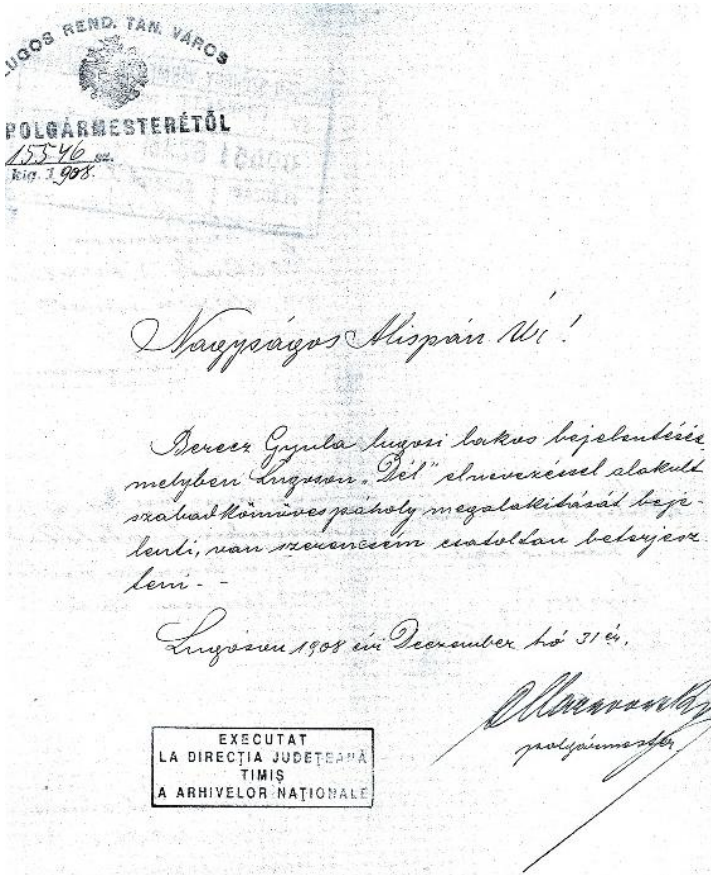 LUGOS REND. TAN. VÁROS
POLGÁRMESTERÉTŐL
15546 sz.
kig. 1908.
Nagyságos Alispán Úr!
Berecz Gyula lugosi lakos bejelentését
melyben Lugoson „Dél" elnevezéssel alakult
szabadkőmüves páholy megalakitását beje-
lenti, van szerencsém csatoltan beterjesz
teni. -
Lugoson 1908 évi Deczember hó 31 én.
polgármester
EXECUTAT
LA DIRECȚIA JUDEȚEANĂ
TIMIȘ
A ARHIVELOR NAȚIONALE